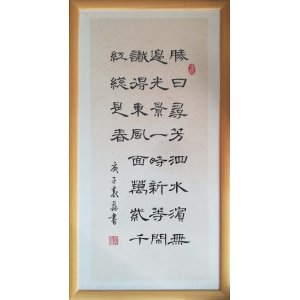 勝日尋芳泗水濱無
邊光景一時新等閑
識得東風面萬紫千
紅總是春
庚子秋森書